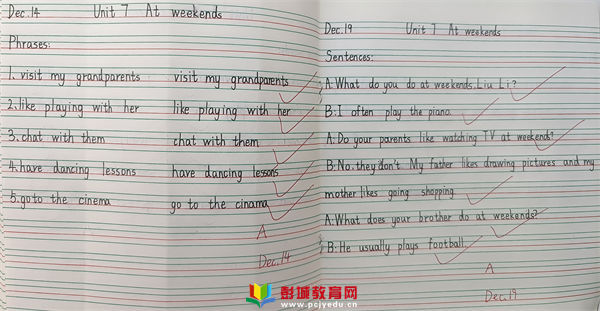 Dec.14 Unit 7 At weekends
Phrases:
1. visit my grandparents visit my grandparents
2. like playing with her like playing with her
3. chat with them chat with them
4. have dancing lessons have dancing lessons
5. go to the cinema go to the cinama
A
Dec.14
Dec.19 Unit 7 At weekends
Sentences:
A: What do you do at weekends. Liu Li?
B: I often play the piano.
A: Do your parents like watching TV at weekends?
B: No. they don't My father likes drawing pictures and my
mother likes going shopping.
A: What does your brother do at weekends?
B: He usually plays football.
A
Dec.19
彭城教育网
www.pcjyedu.cn